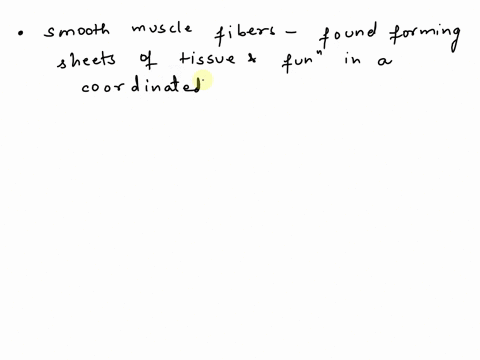 • smooth muscle fibers - found forming
sheets of tissue & funⁿ in a
coordinated